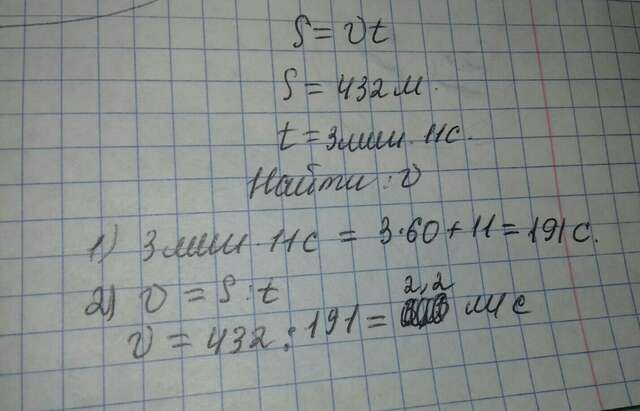 S = vt
S = 432 м.
t = 3 мин. 11 с.
Найти: v
1) 3 мин. 11 с = 3·60 + 11 = 191 с.
2) v = S : t
v = 432 : 191 = 2,2 м/с